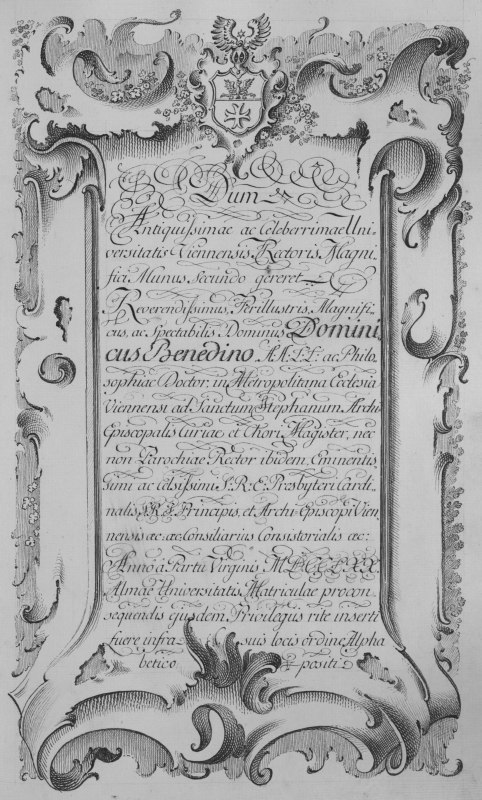 Dum
Antiquissimae ac Celeberrimae Uni-
versitatis Viennensis Rectoris Magni,
fici Munus secundo gereret
Reverendissimus, Perillustris, Magnifi,
cus, ac Spectabilis Dominus Domini
cus Benedino AA.LL. ac Philo,
sophiae Doctor, in Metropolitana Ecclesia
Viennensi ad Sanctum Stephanum Archi
Episcopalis Curiae et Chori Magister, nec
non Parochiae Rector ibidem, Eminentis,
simi ac Celsissimi S.R.E. Presbyteri Cardi-
nalis, S.R.I. Principis, et Archi-Episcopi Vien
nensis ac ac Consiliarius Consistorialis ac:
Anno à Partu Virginis
Almae Universitatis Matriculae pro con,
sequendis ejusdem Privilegiis rite inserti
fuere infra suis locis ordine Alpha
betico positi